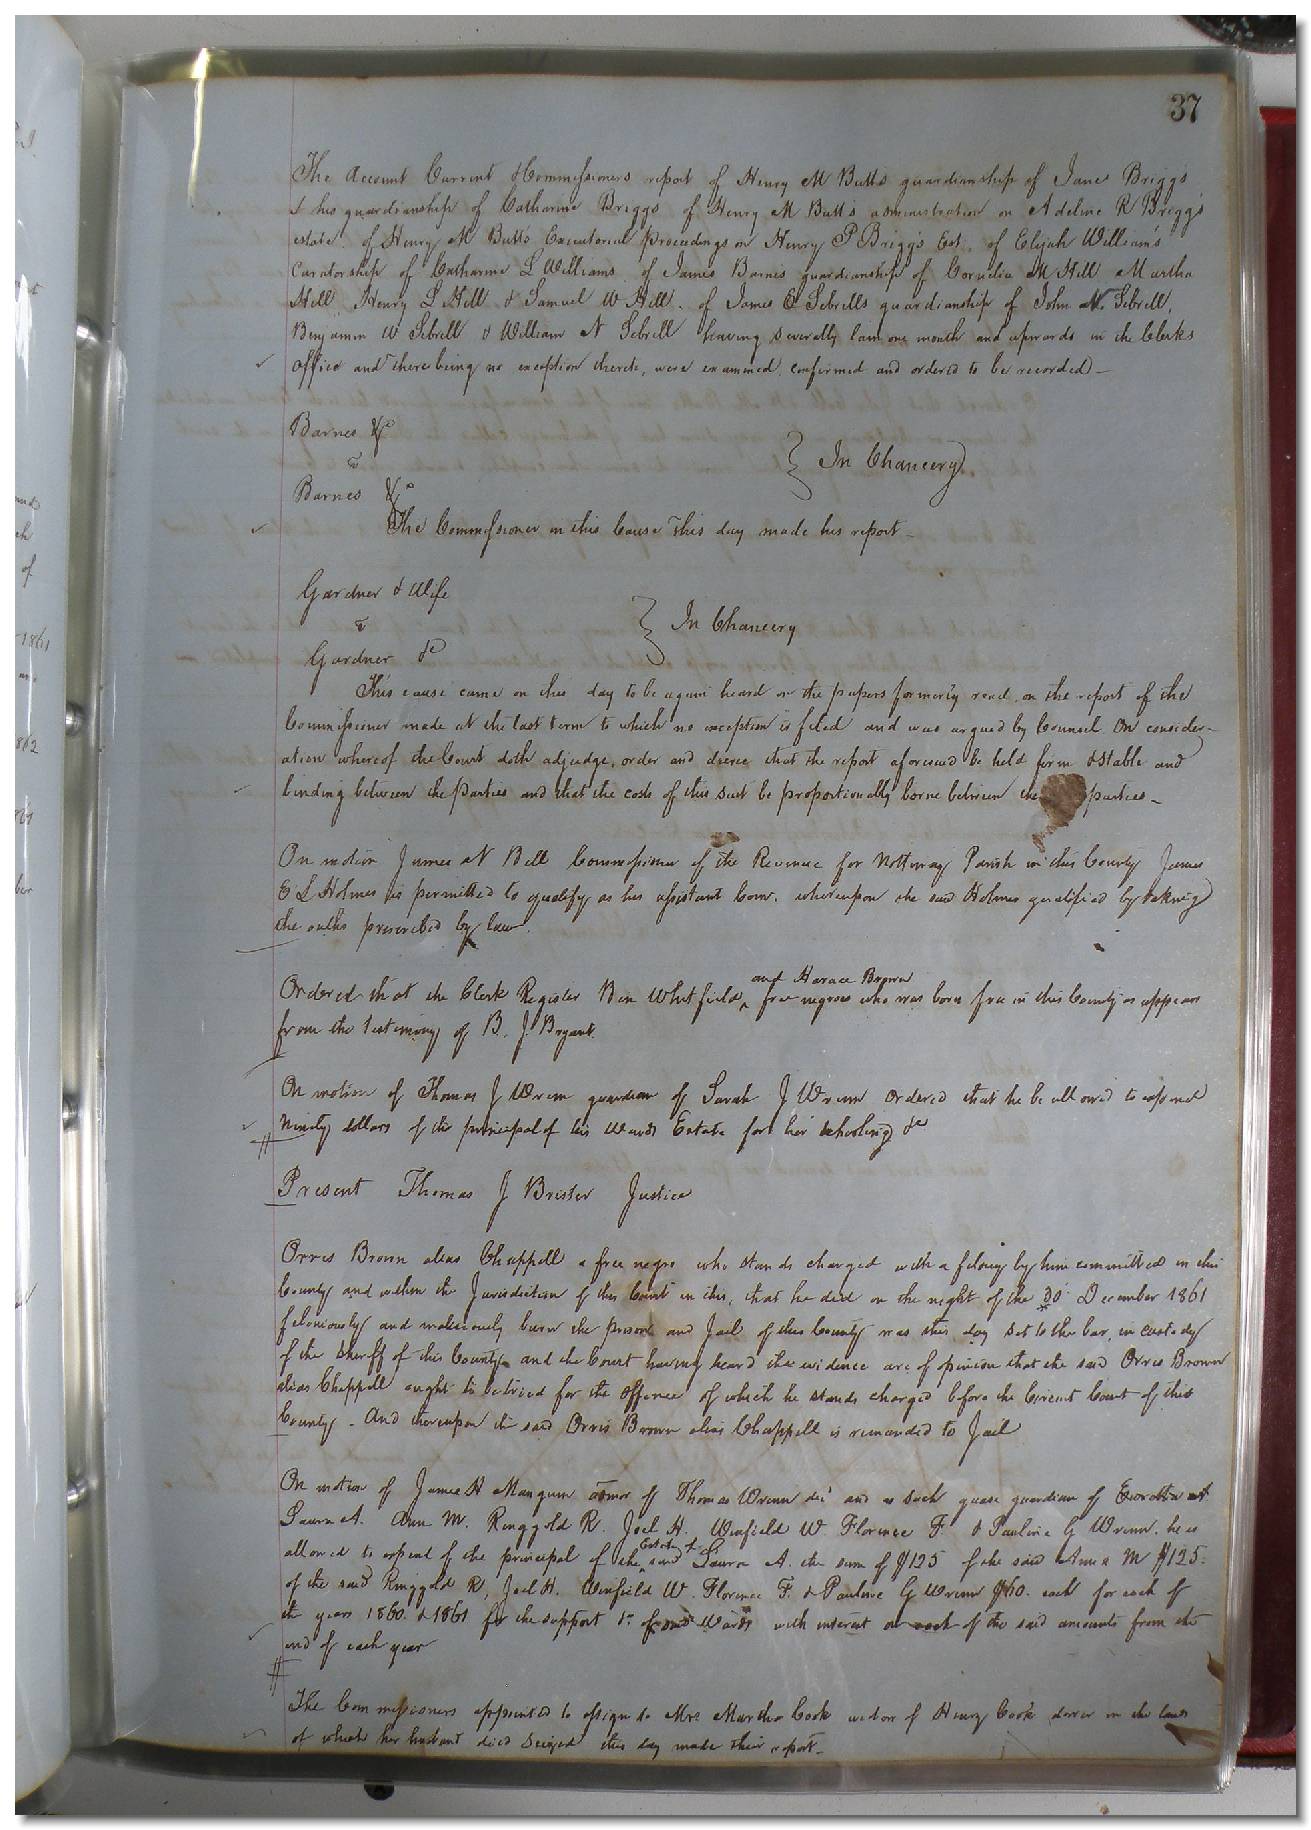 37
The Account Current & Commissioners report of Henry M Butts guardianship of Jane Briggs
& his guardianship of Catharine Briggs of Henry M Butts administration on Adeline R Briggs
estate. of Henry M Butts Executorial proceedings on Henry P Briggs Est. of Elijah William's
Curatorship of Catharine L Williams of James Barnes guardianship of Cornelia M Hill Martha
Hill Henry L Hill & Samuel W Hill. of James E Sebrells guardianship of John N. Sebrell,
Benjamin W Sebrell & William N Sebrell having severally lain one month and upwards in the Clerks
office and there being no exception thereto, were examined, confirmed and ordered to be recorded —
Barnes &c
v
Barnes &c
In Chancery
The Commissioner in this Cause this day made his report —
Gardner & Wife
v
Gardner &c
In Chancery
This cause came on this day to be again heard on the papers formerly read. on the report of the
Commissioner made at the last term to which no exception is filed and was argued by Counsel On consider-
ation whereof the Court doth adjudge, order and decree that the report aforesaid be held firm & stable and
binding between the parties and that the costs of this suit be proportionally borne between the parties —
On motion James N Bell Commissioner of the Revenue for Nottoway Parish in this County James
E L Holmes is permitted to qualify as his assistant Com. whereupon the said Holmes qualified by taking
the oaths prescribed by law.
and Horace Brown
Ordered that the Clerk Register Ben Whitfield free negroes who was born free in this County as appears
from the testimony of B. J. Bryant.
On motion of Thomas J Wrenn guardian of Sarah J Wrenn ordered that he be allowed to expend
Ninety dollars of the principal of his Wards Estate for her schooling &c
Present Thomas J Brister Justice
Orris Brown alias Chappell a free negro who stands charged with a felony by him committed in this
County and within the Jurisdiction of this Court in this, that he did on the night of the 30 December 1861
feloniously and maliciously burn the prison and Jail of this County was this day set to the bar, in custody
of the Sheriff of this County and the Court having heard the evidence are of opinion that the said Orris Brown
alias Chappell ought to be tried for the offence of which he stands charged before the Circuit Court of this
County - And thereupon the said Orris Brown alias Chappell is remanded to Jail
On motion of James H Mangum admr of Thomas Wrenn dec and as such quase guardian of
Laura A. Ann M. Ringgold R. Joel H. Winfield W. Florence F. & Pauline G Wrenn. he is
allowed to expend of the principal of the said Laura A. the sum of $125 of the said Ann M $125.
of the said Ringgold R, Joel H. Winfield W. Florence F. & Pauline G Wrenn $60. each for each of
the years 1860. & 1861 for the support &c of said Wards with interest on each of the said amounts from the
end of each year
The Commissioners appointed to assign to Mrs Martha Cook widow of Henry Cook dower in the lands
of which her husband died Seized this day made their report —